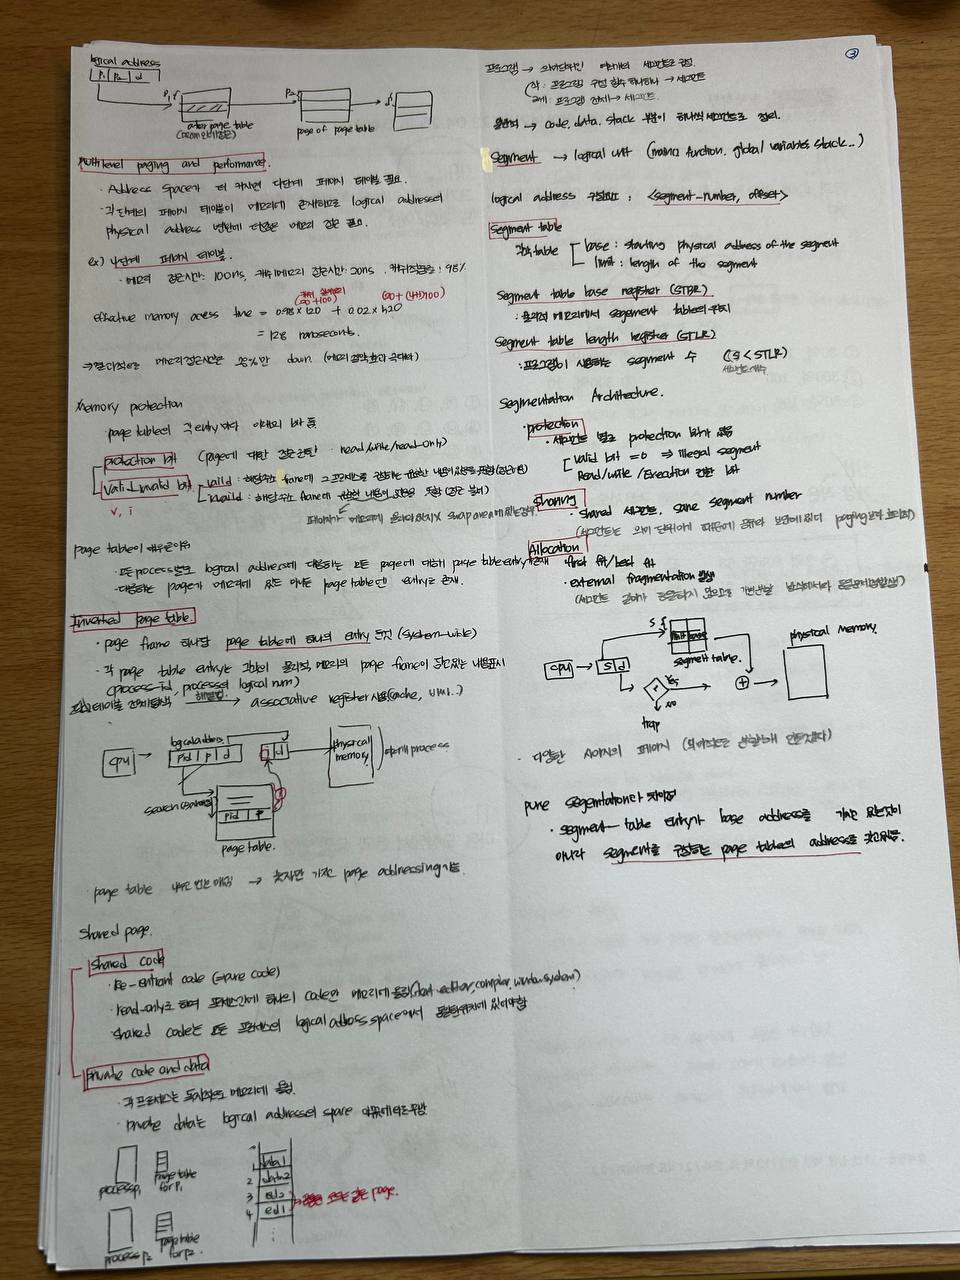 logical address
P₁ P₂ d
P₁
P₂
outer page table
page of page table
Multilevel paging and performance.
· Address space가 더 커지면 다단계 페이지 테이블 필요.
· 각 단계의 페이지 테이블이 메모리에 존재하므로 logical address의
physical address 변환에 더 많은 메모리 접근 필요.
ex) 4단계 페이지 테이블.
· 메모리 접근시간: 100ns, 캐쉬메모리 접근시간: 20ns, 캐쉬적중률: 98%
(20+100)
effective memory access time = 0.98 × 120 + 0.02 × 520
= 128 nanoseconds.
메모리 접근시간은 28%만 down
Memory protection
page table의 각 entry 마다 아래의 bit 둠
protection bit (page에 대한 접근 권한 · read/write/read-only)
Valid-invalid bit
valid : 해당주소 frame에 그 프로세스를 구성하는 유효한 내용이 있음을 뜻함
invalid : 해당주소 frame에 유효한 내용이 없음을 뜻함 (접근 불허)
v, i
swap area에 있는경우
page table이 매우큰이유
· 모든 process별로 logical address에 대응하는 모든 page에 대해 page table entry 존재
· 대응하는 page가 메모리에 있든 아니든 page table에는 entry로 존재.
Inverted page table.
· page frame 하나당 page table에 하나의 entry 둔것 (system-wide)
· 각 page table entry는 각각의 물리적 메모리의 page frame이 담고있는 내용표시
(process-id, process의 logical num)
해결법.
→ associative register 사용
cpu
→
logical address
pid p d
d
physical
memory
process
search
pid p
page table.
→
page addressing 가능.
Shared page.
shared code
· Re-entrant code (=pure code)
· read-only로 하여 프로세스간에 하나의 code만 메모리에 올림 (text editor, compiler, window system)
· shared code는 모든 프로세스의 logical address space에서 동일한위치에 있어야함
Private code and data
· 각 프로세스는 독자적으로 메모리에 올림.
· private data는 logical address의 space 아무데나와도무방
process P₁
page table
for P₁
1 data1
2 data2
3 ed2
4 ed1
모두 같은 page.
process P₂
page table
for P₂.
프로그램 → 의미단위인 여러개의 세그먼트로 구성
작: 프로그램 구성 함수 하나하나 → 세그먼트
크게: 프로그램 전체 → 세그먼트.
일반적 → code, data, stack 부분이 하나씩 세그먼트로 정의.
Segment → logical unit (main() function, global variables, stack...)
logical address 구성요소 : <segment-number, offset>
Segment table
각각 table
base : starting physical address of the segment
limit : length of the segment
Segment table base register (STBR)
: 물리적 메모리에서 segement table의 위치
Segment table length register (STLR)
: 프로그램이 사용하는 segment 수 (S < STLR)
Segmentation Architecture.
protection
· 세그먼트 별로 protection bit가 있음
valid bit = 0 ⇒ illegal segment
Read/write/Execution 권한 bit
Sharing
· shared 세그먼트. same segment number
Allocation
· first fit/best fit
· external fragmentation 발생
cpu → s d
s
limit base
segment table.
<
yes
no
trap
+
physical memory.
· 다양한 사이즈의 페이지
pure segmentation과 차이점
· segment-table entry가 base address를 가지고 있는것이
아니라 segment를 구성하는 page table의 address를 갖고있음.